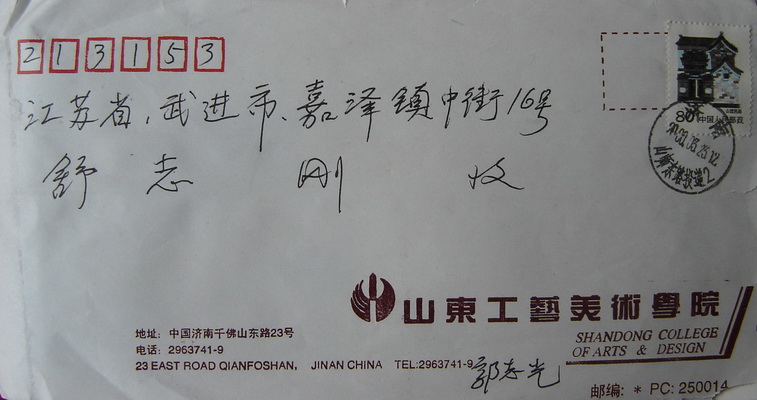 213153
江苏省,武进市、嘉泽镇中街16号
舒志刚 收
80 中国人民邮政
济南
2000.05.25.12
山東工藝美術學院
SHANDONG COLLEGE
OF ARTS & DESIGN
地址: 中国济南千佛山东路23号
电话: 2963741-9
23 EAST ROAD QIANFOSHAN, JINAN CHINA TEL:2963741-9
郭志光
邮编: * PC: 250014